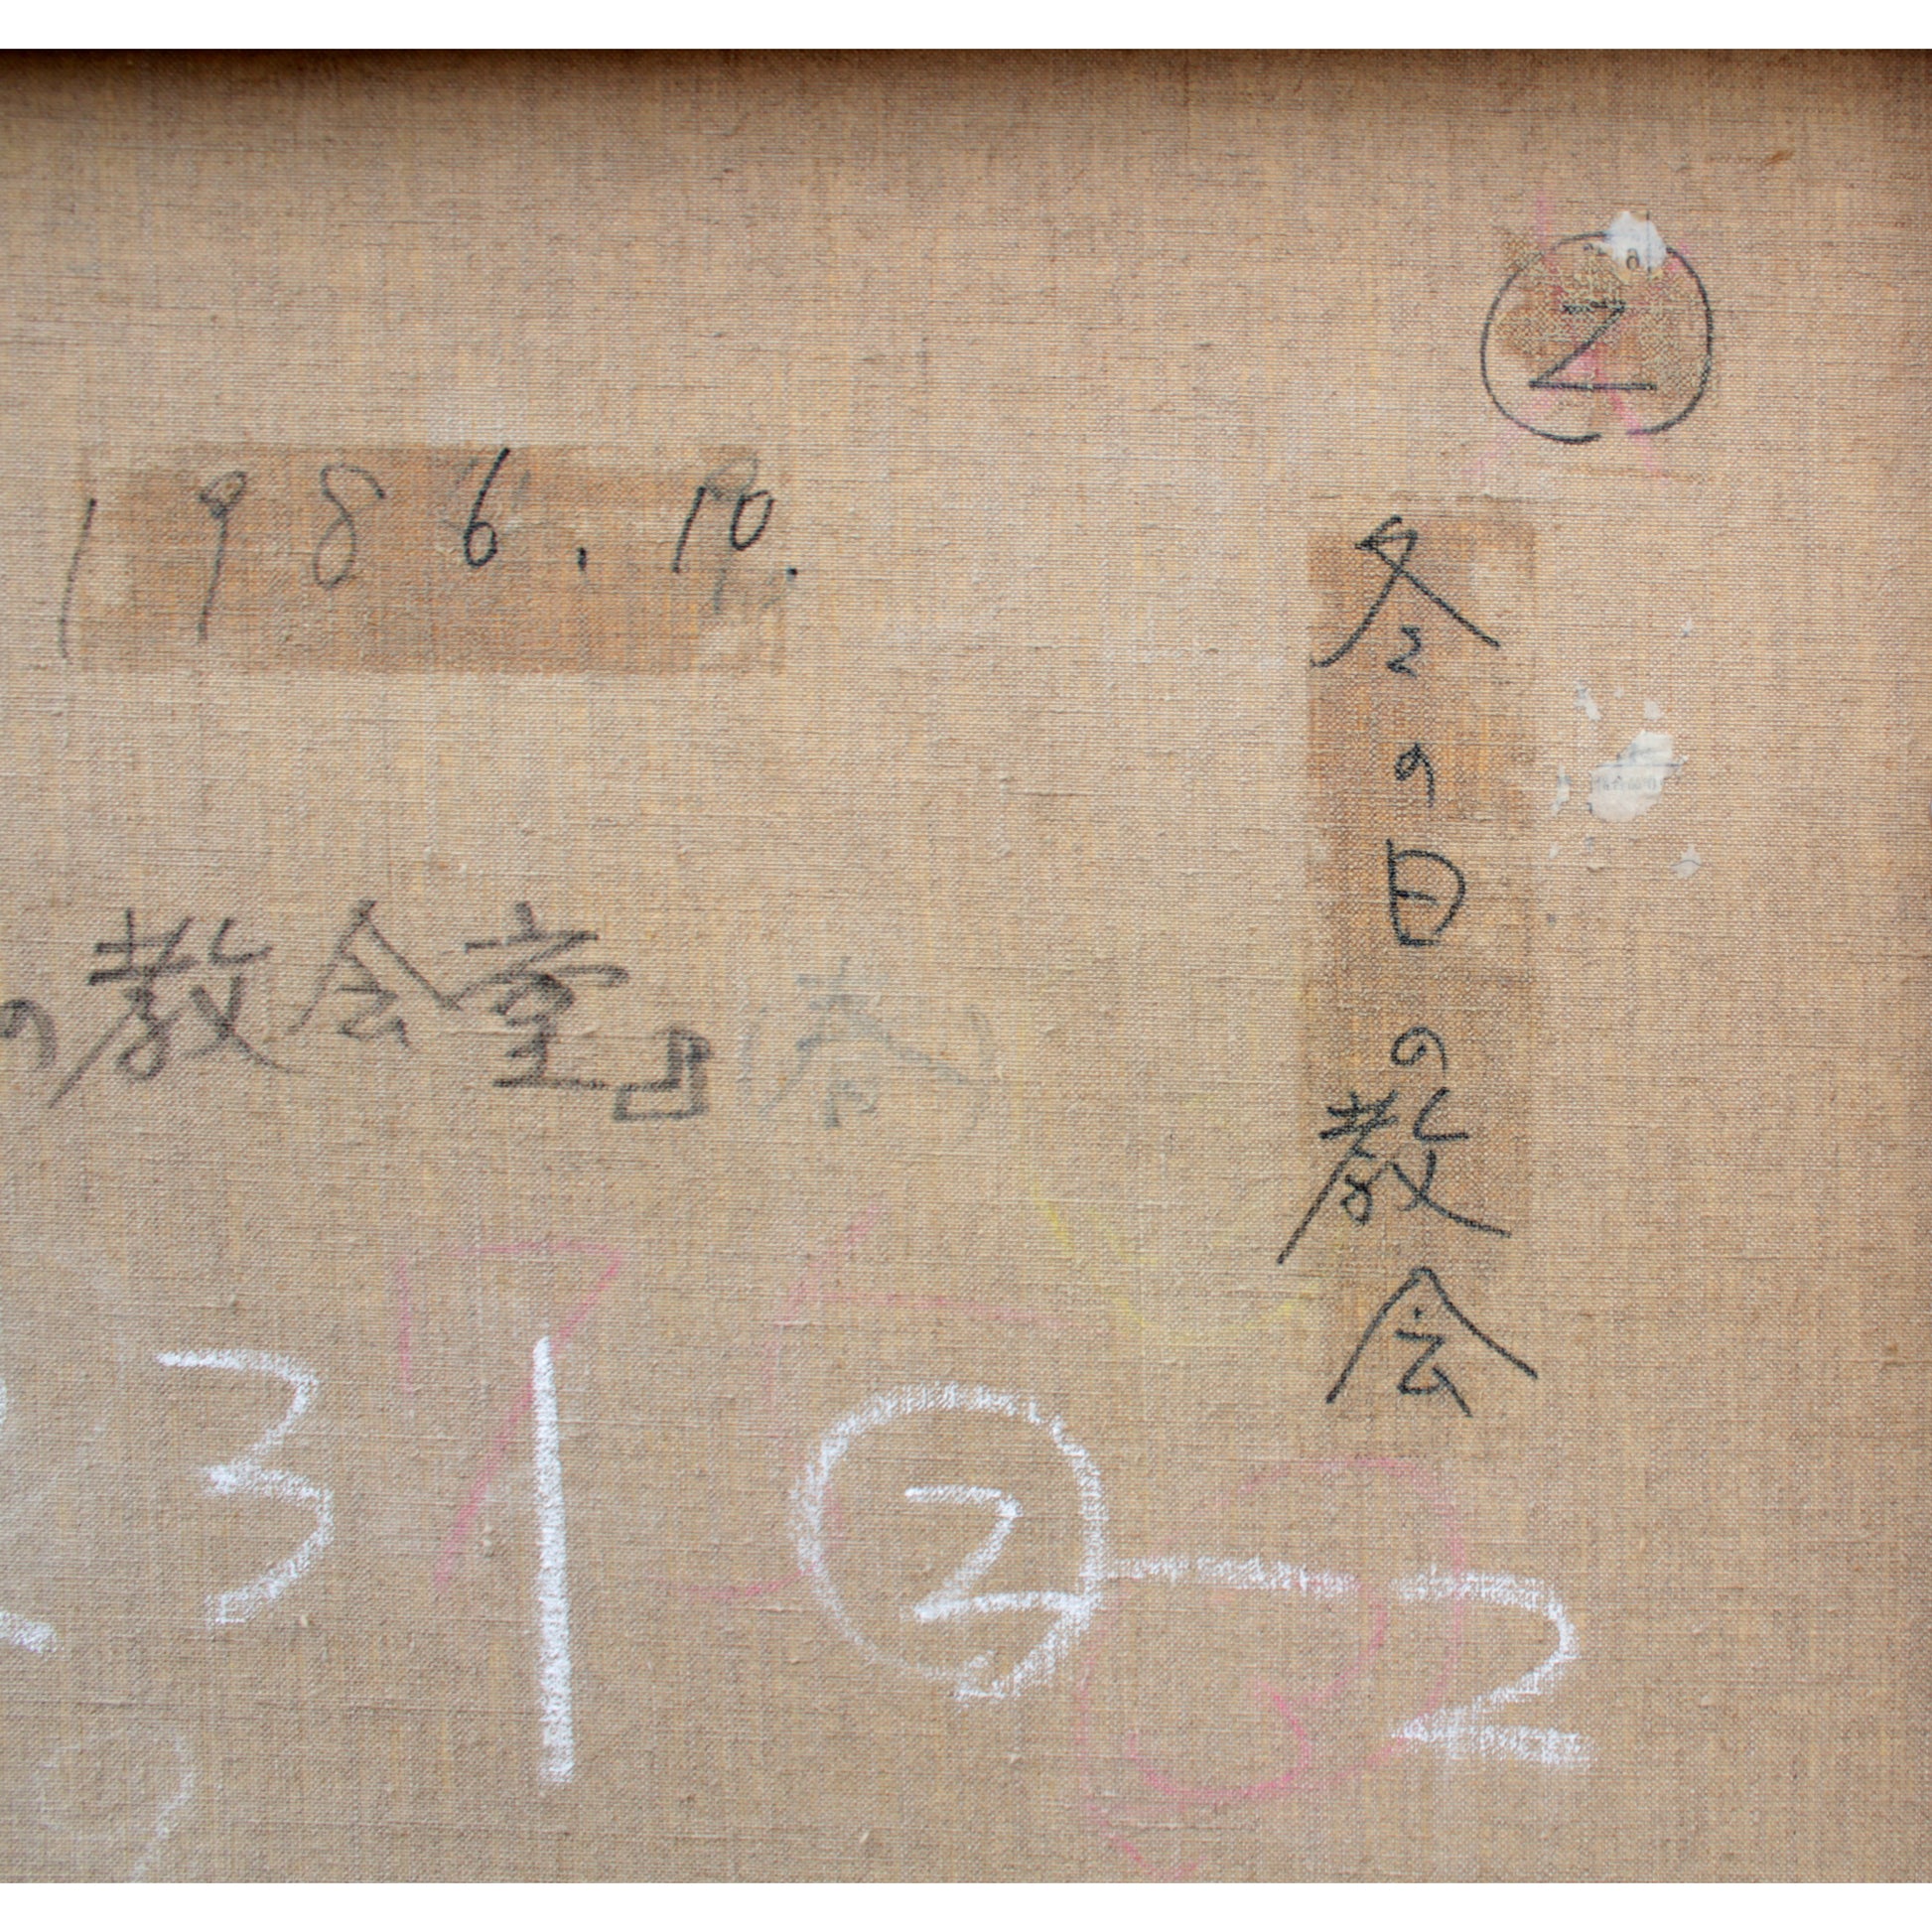 ②
1986.10.
冬の日の教会
の教会堂』(春)
31②-2